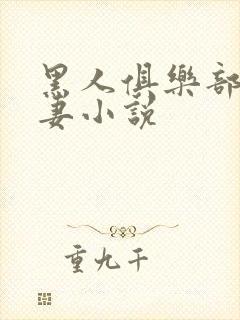 黑人俱樂部
妻小說
重九千